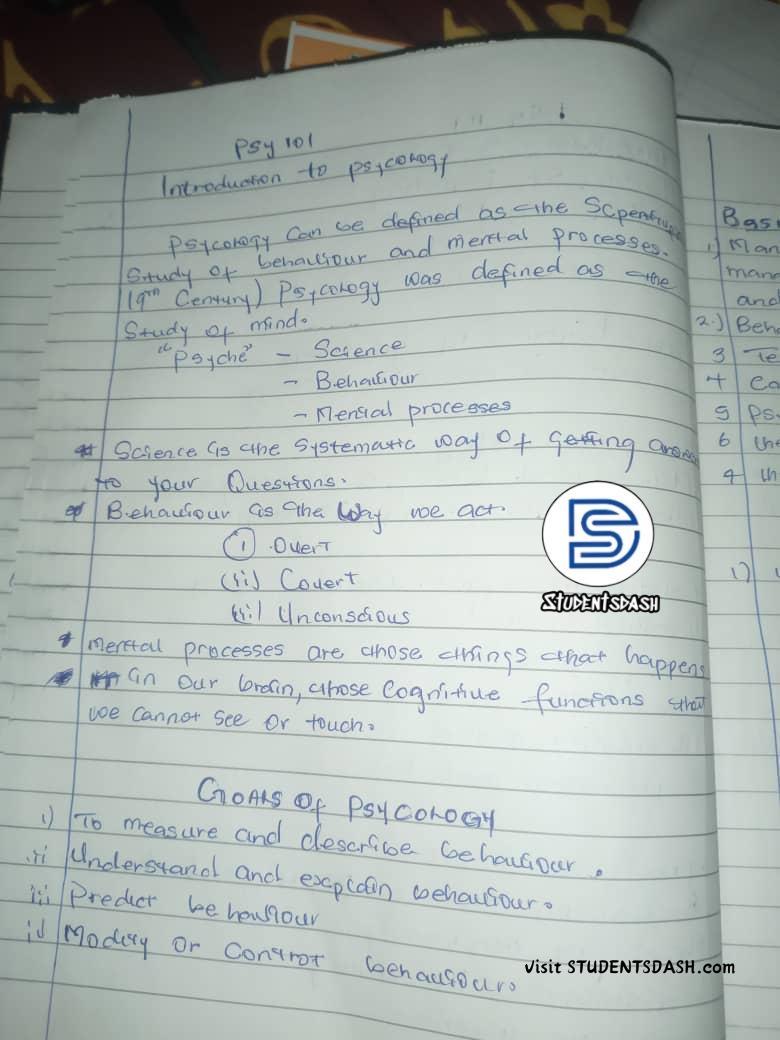 PSY 101
Introduction to psycology
Psycology can be defined as the Scientific
Study of behaviour and mental processes.
19th Century) Psycology was defined as the
Study of mind.
"Psyche" - Science
- Behaviour
- Mental processes
* Science is the systematic way of getting
to your Questions.
* Behaviour is the way we act.
(i) Overt
(ii) Covert
(iii) Unconscious
* Mental processes are those things that happens
in our brain, those cognitive functions that
we cannot see or touch.
GOALS OF PSYCOLOGY
i) To measure and describe behaviour.
ii Understand and explain behaviour.
iii Predict behaviour
iv Modify or Control behaviour.
Bas
1) Man
mann
and
2.) Beha
3 Te
4 Co
5 Ps
6 the
9 th
1)
STUDENTSDASH
visit STUDENTSDASH.com